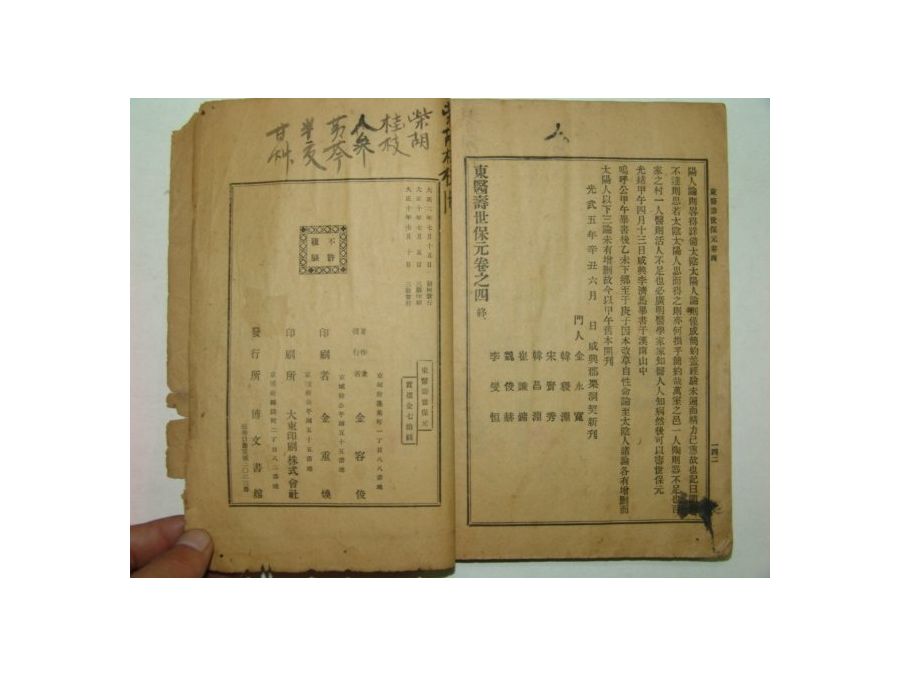 東醫壽世保元卷四
一四二
不達則思若太陰太陽人思而得之則亦何損乎簡約哉萬室之邑一人陶則器不足也百
家之村一人醫則活人不足也必廣明醫學家家知醫人人知病然後可以壽世保元
光緖甲午四月十三日咸興李濟馬畢書于漢南山中
嗚呼公甲午畢書後乙未下鄉至于庚子因本改草自性命論至太陰人諸論各有增刪而
太陽人以下三論未有增刪故今以甲午舊本開刊
光武五年辛丑六月 日咸興郡栗洞契新刊
門人 金永寬
韓稷淵
宋賢秀
韓昌淵
崔謙鏞
魏俊赫
李燮恒
東醫壽世保元卷之四 終
柴胡
桂枝
人參
黃芩
半夏
甘艸
大正二年七月十五日
大正十年七月五日
大正十年七月十日
不許複製
東醫壽世保元
定價金七拾錢
金容俊
印刷者 金重煥
京城府公平洞五十五番地
印刷所 大東印刷株式會社
京城府公平洞五十五番地
發行所 博文書館